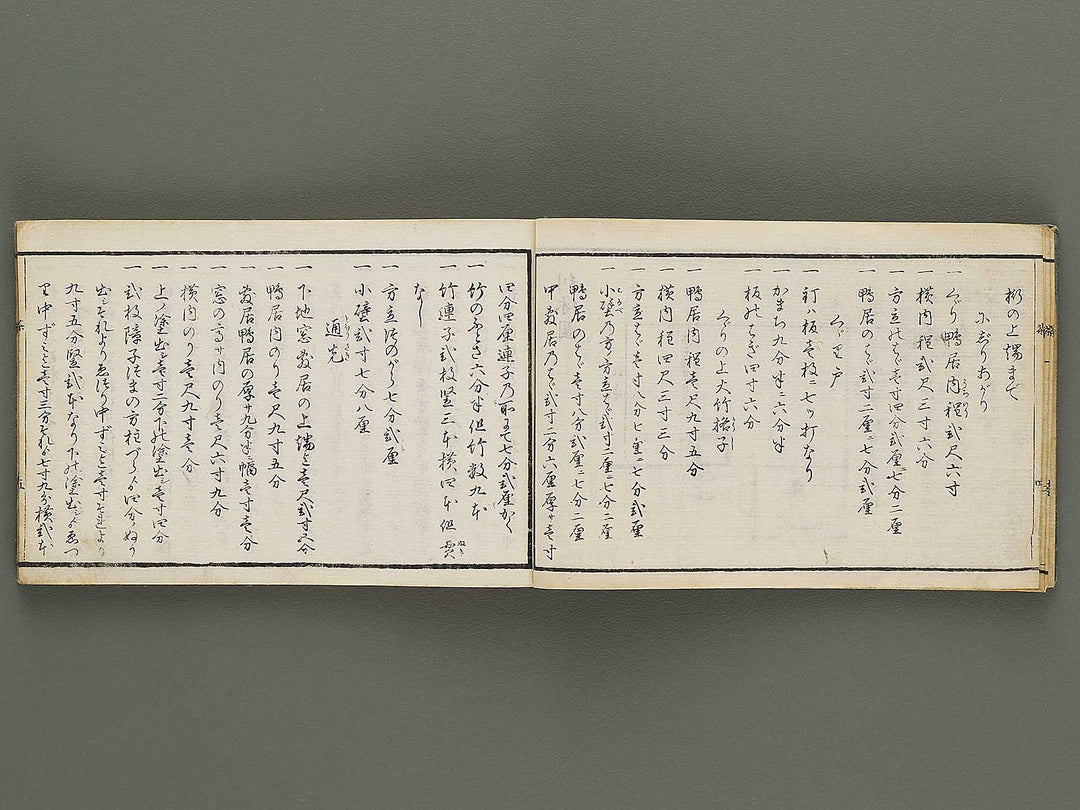 桁の上端まで
にぢりあがり
一くゞり鴨居内裎弐尺六寸
一横内裎弐尺三寸六分
一方立のはゞ壱寸四分弐厘ニ七分二厘
一鴨居のはゞ弐寸二厘ニ七分弐厘
くゞり戸
一釘ハ板壱枚ニ七ッ打なり
一かまち九分半ニ六分半
一板のはぎ四寸六分
くゞりの上大竹櫺子
一鴨居内裎壱尺九寸五分
一横内裎四尺三寸三分
一方立はゞ壱寸八分七厘ニ七分弐厘
一小壁乃方方立はゞ弐寸二厘ニ七分二厘
鴨居のはゞ壱寸八分弐厘ニ七分二厘
中敷居乃はゞ弐寸二分六厘厚サ壱寸
四分四厘連子乃所にて七分弐厘かく
一竹のふとさ六分半但竹数九本
一竹連子弐枚竪三本横四本但貫
なし
一方立外のがく七分弐厘
一小壁弐寸七分八厘
通光
一下地窓敷居の上端迄壱尺弐寸五分
一鴨居内のり壱尺九寸五分
一敷居鴨居の厚サ九分半幅壱寸壱分
一窓の高サ内のり壱尺六寸九分
一横内のり壱尺九寸壱分
一上ノ塗出シ壱寸二分下の塗出シ壱寸四分
一弐枚障子はまの方柱づらゟ四分ぬり
出シそれより
九寸五分竪弐本なり下の塗出シゟ
り中ずミ迄壱寸三分それゟ七寸九分横弐本